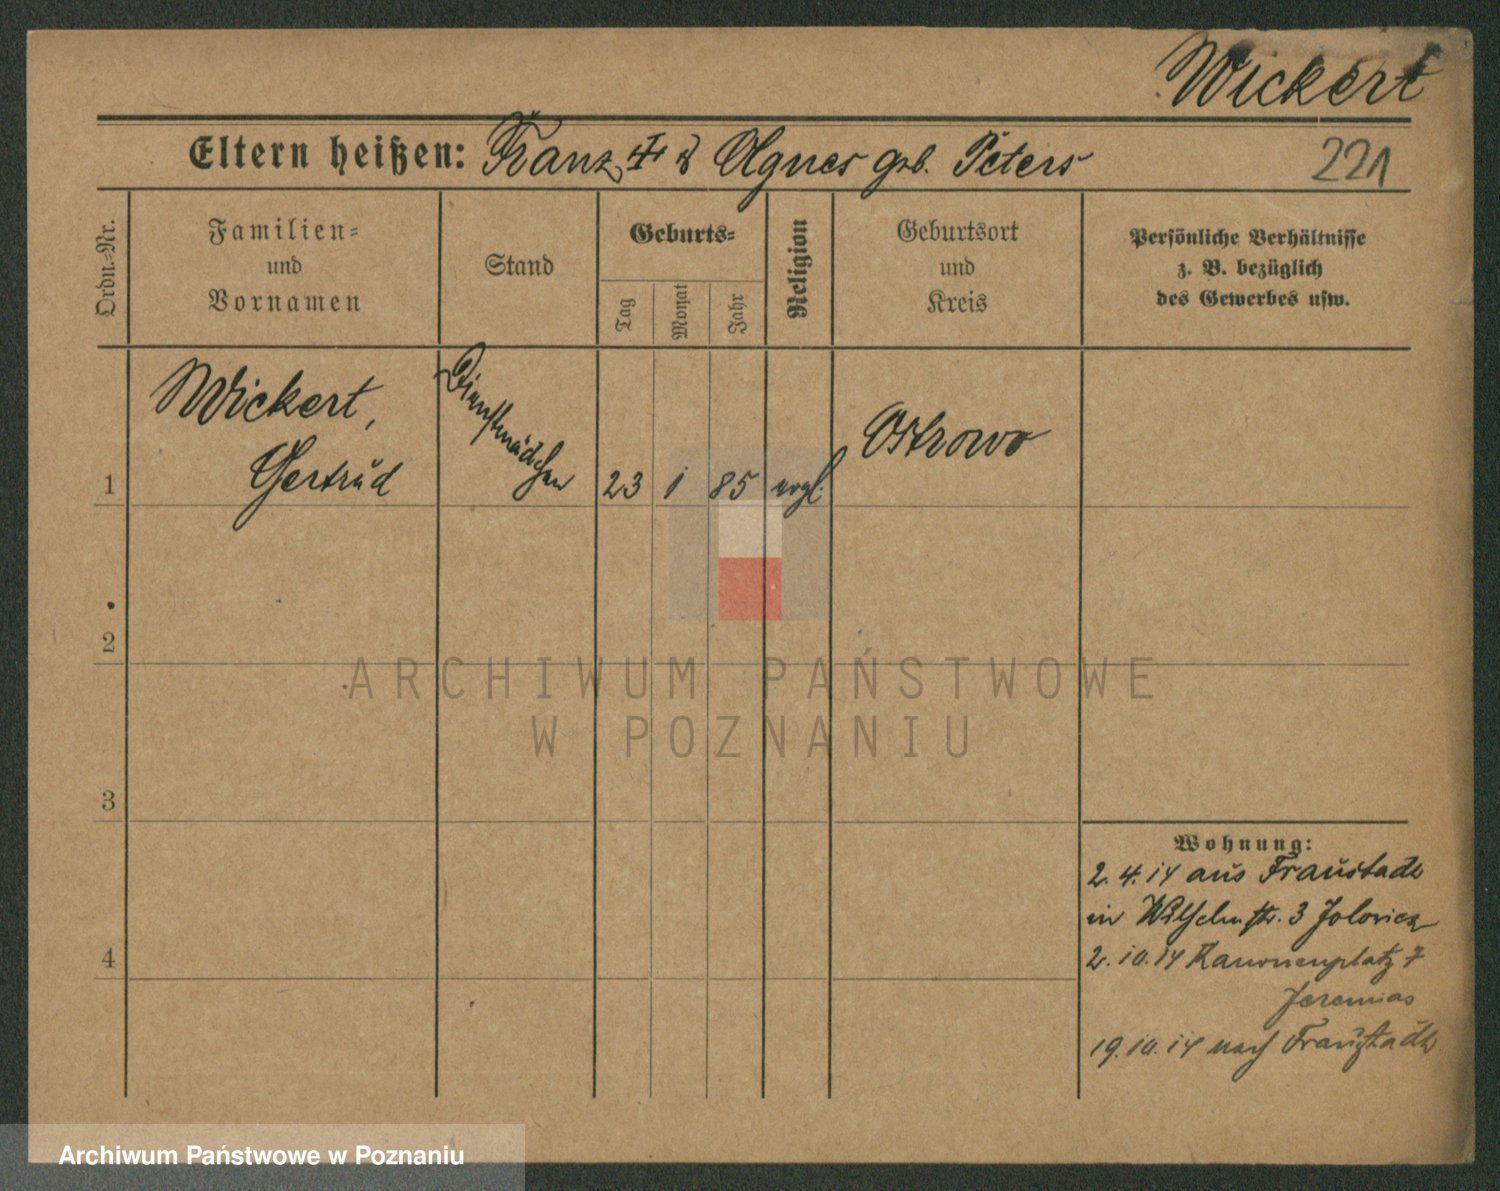 Wickert
Eltern heißen: Franz ✝ & Agnes geb. Peters
221
Ordn.=Nr.
Familien=
und
Vornamen
Stand
Geburts=
Tag
Monat
Jahr
Religion
Geburtsort
und
Kreis
Persönliche Verhältnisse
z. B. bezüglich
des Gewerbes usw.
1
Wickert,
Gertrud
Dienstmädchen
23
1
85
evgl.
Ostrowo
2
3
4
Wohnung:
2. 4. 14 aus Fraustadt
in Wilhelmstr. 3 Jolowicz
2. 10. 14 Kanonenplatz 7
Jeremias
19. 10. 14 nach Fraustadt
ARCHIWUM PAŃSTWOWE
W POZNANIU
Archiwum Państwowe w Poznaniu